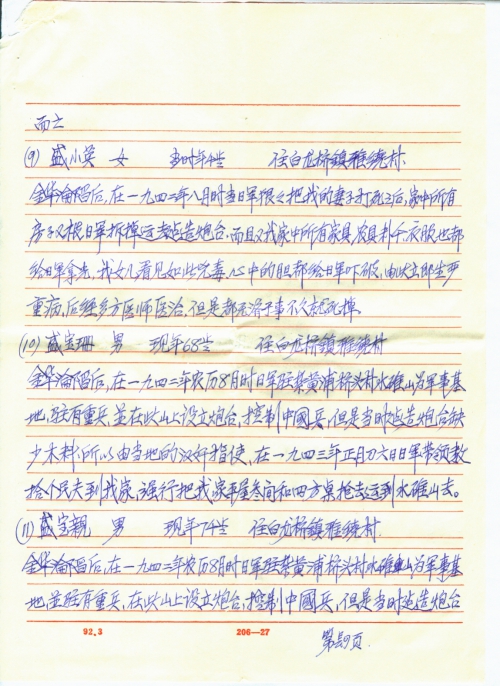 而亡
(9) 盛小英 女 当时年4岁 住白龙桥镇雅绕村.
金华沦陷后,在一九四三年八月时当日军狠心把我的妻子打死之后,家中所有
房子又根日军拆掉运去占造炮台.而且又我家中所有家具,农具料千衣服也都
给日军拿走,我女儿看见如此惨毒.心中的胆都给日军吓破,由此立即生严
重病,后经多方医师医治.但是都无济于事不久就死掉.
(10) 盛宝珊 男 现年68岁 住白龙桥镇雅绕村
金华沦陷后,在一九四二年农历8月时日军驻紮黄浦桥头村水碓山为军事基
地,驻有重兵,並在此山上设立炮台,控制中國兵,但是当时占造炮台缺
少木料,所以由当地的汉奸指使,在一九四三年正月初六日日军带领数
拾个民夫到我家,强行把我家平屋叁间和四方桌抢去运到水碓山去。
(11) 盛宝親 男 现年74岁 住白龙桥镇雅绕村.
金华沦陷后,在一九四二年农历8月时日军驻紮黄浦桥头村水碓山为军事基
地,並驻有重兵,在此山上设立炮台,控制中國兵,但是当时占造炮台
92.3 206—27
第 页.